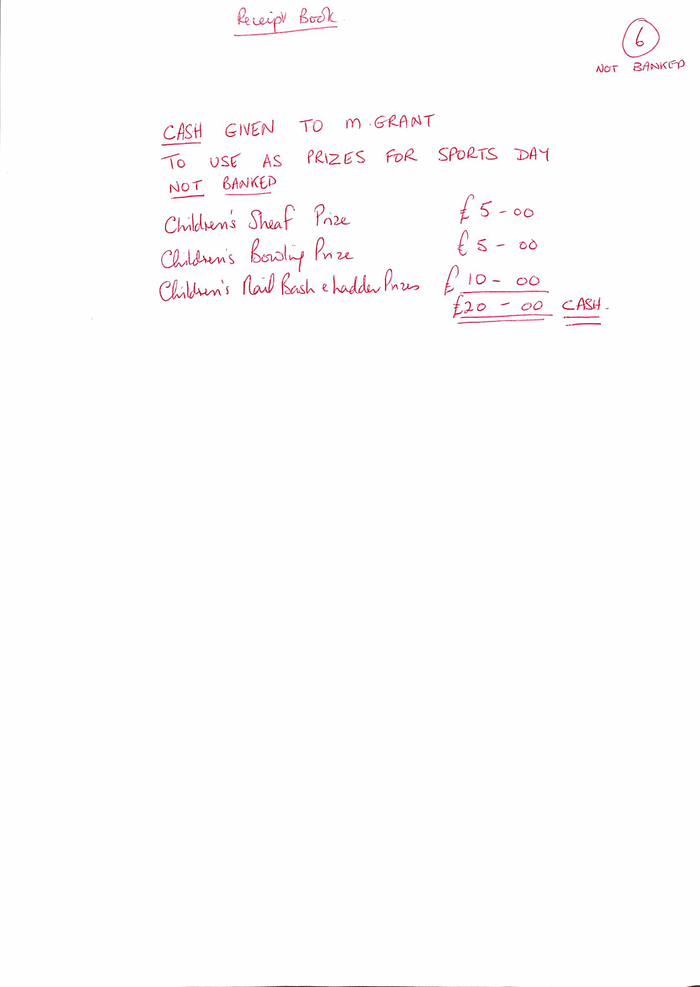 Receipt Book
6
NOT BANKED
CASH GIVEN TO M.GRANT
TO USE AS PRIZES FOR SPORTS DAY
NOT BANKED
Children's Sheaf Prize £5-00
Children's Bowling Prize £5-00
Children's Nail Bash & Ladder Prizes £10-00
£20-00 CASH.